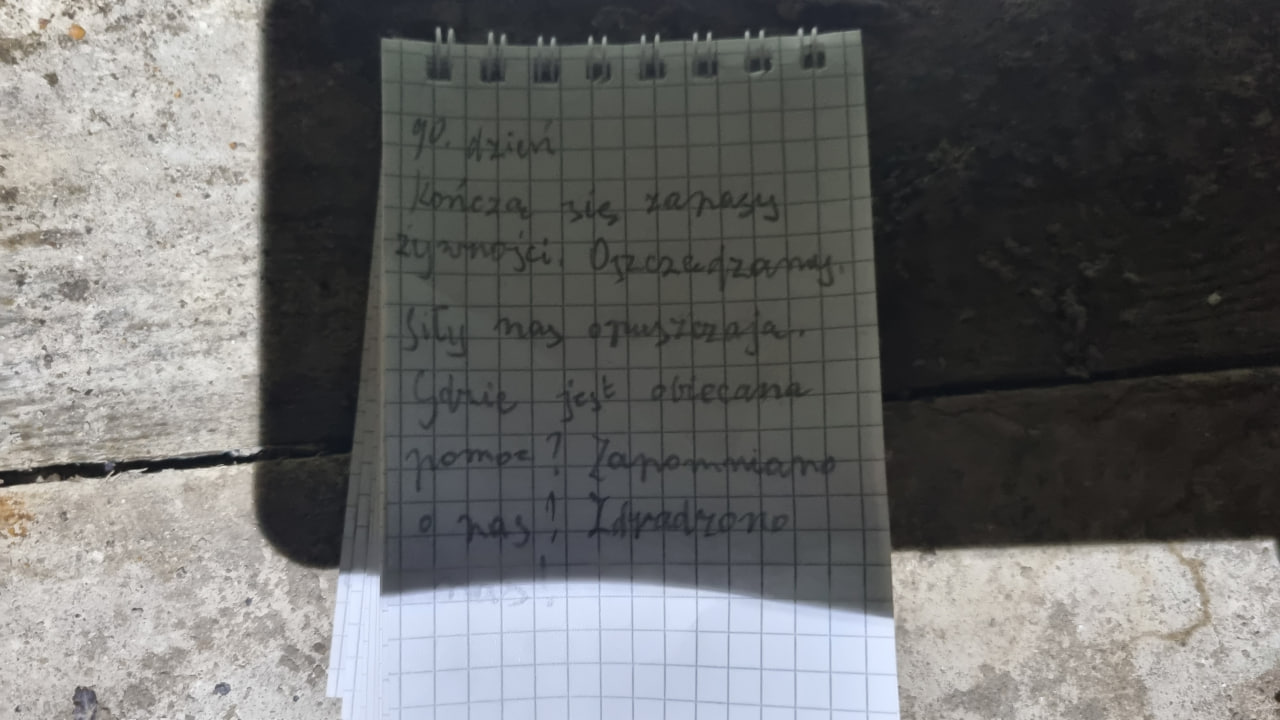 90. dzień
Kończą się zapasy
żywności. Oszczędzamy.
Siły nas opuszczają.
Gdzie jest obiecana
pomoc? Zapomniano
o nas! Zdradzono
nas!